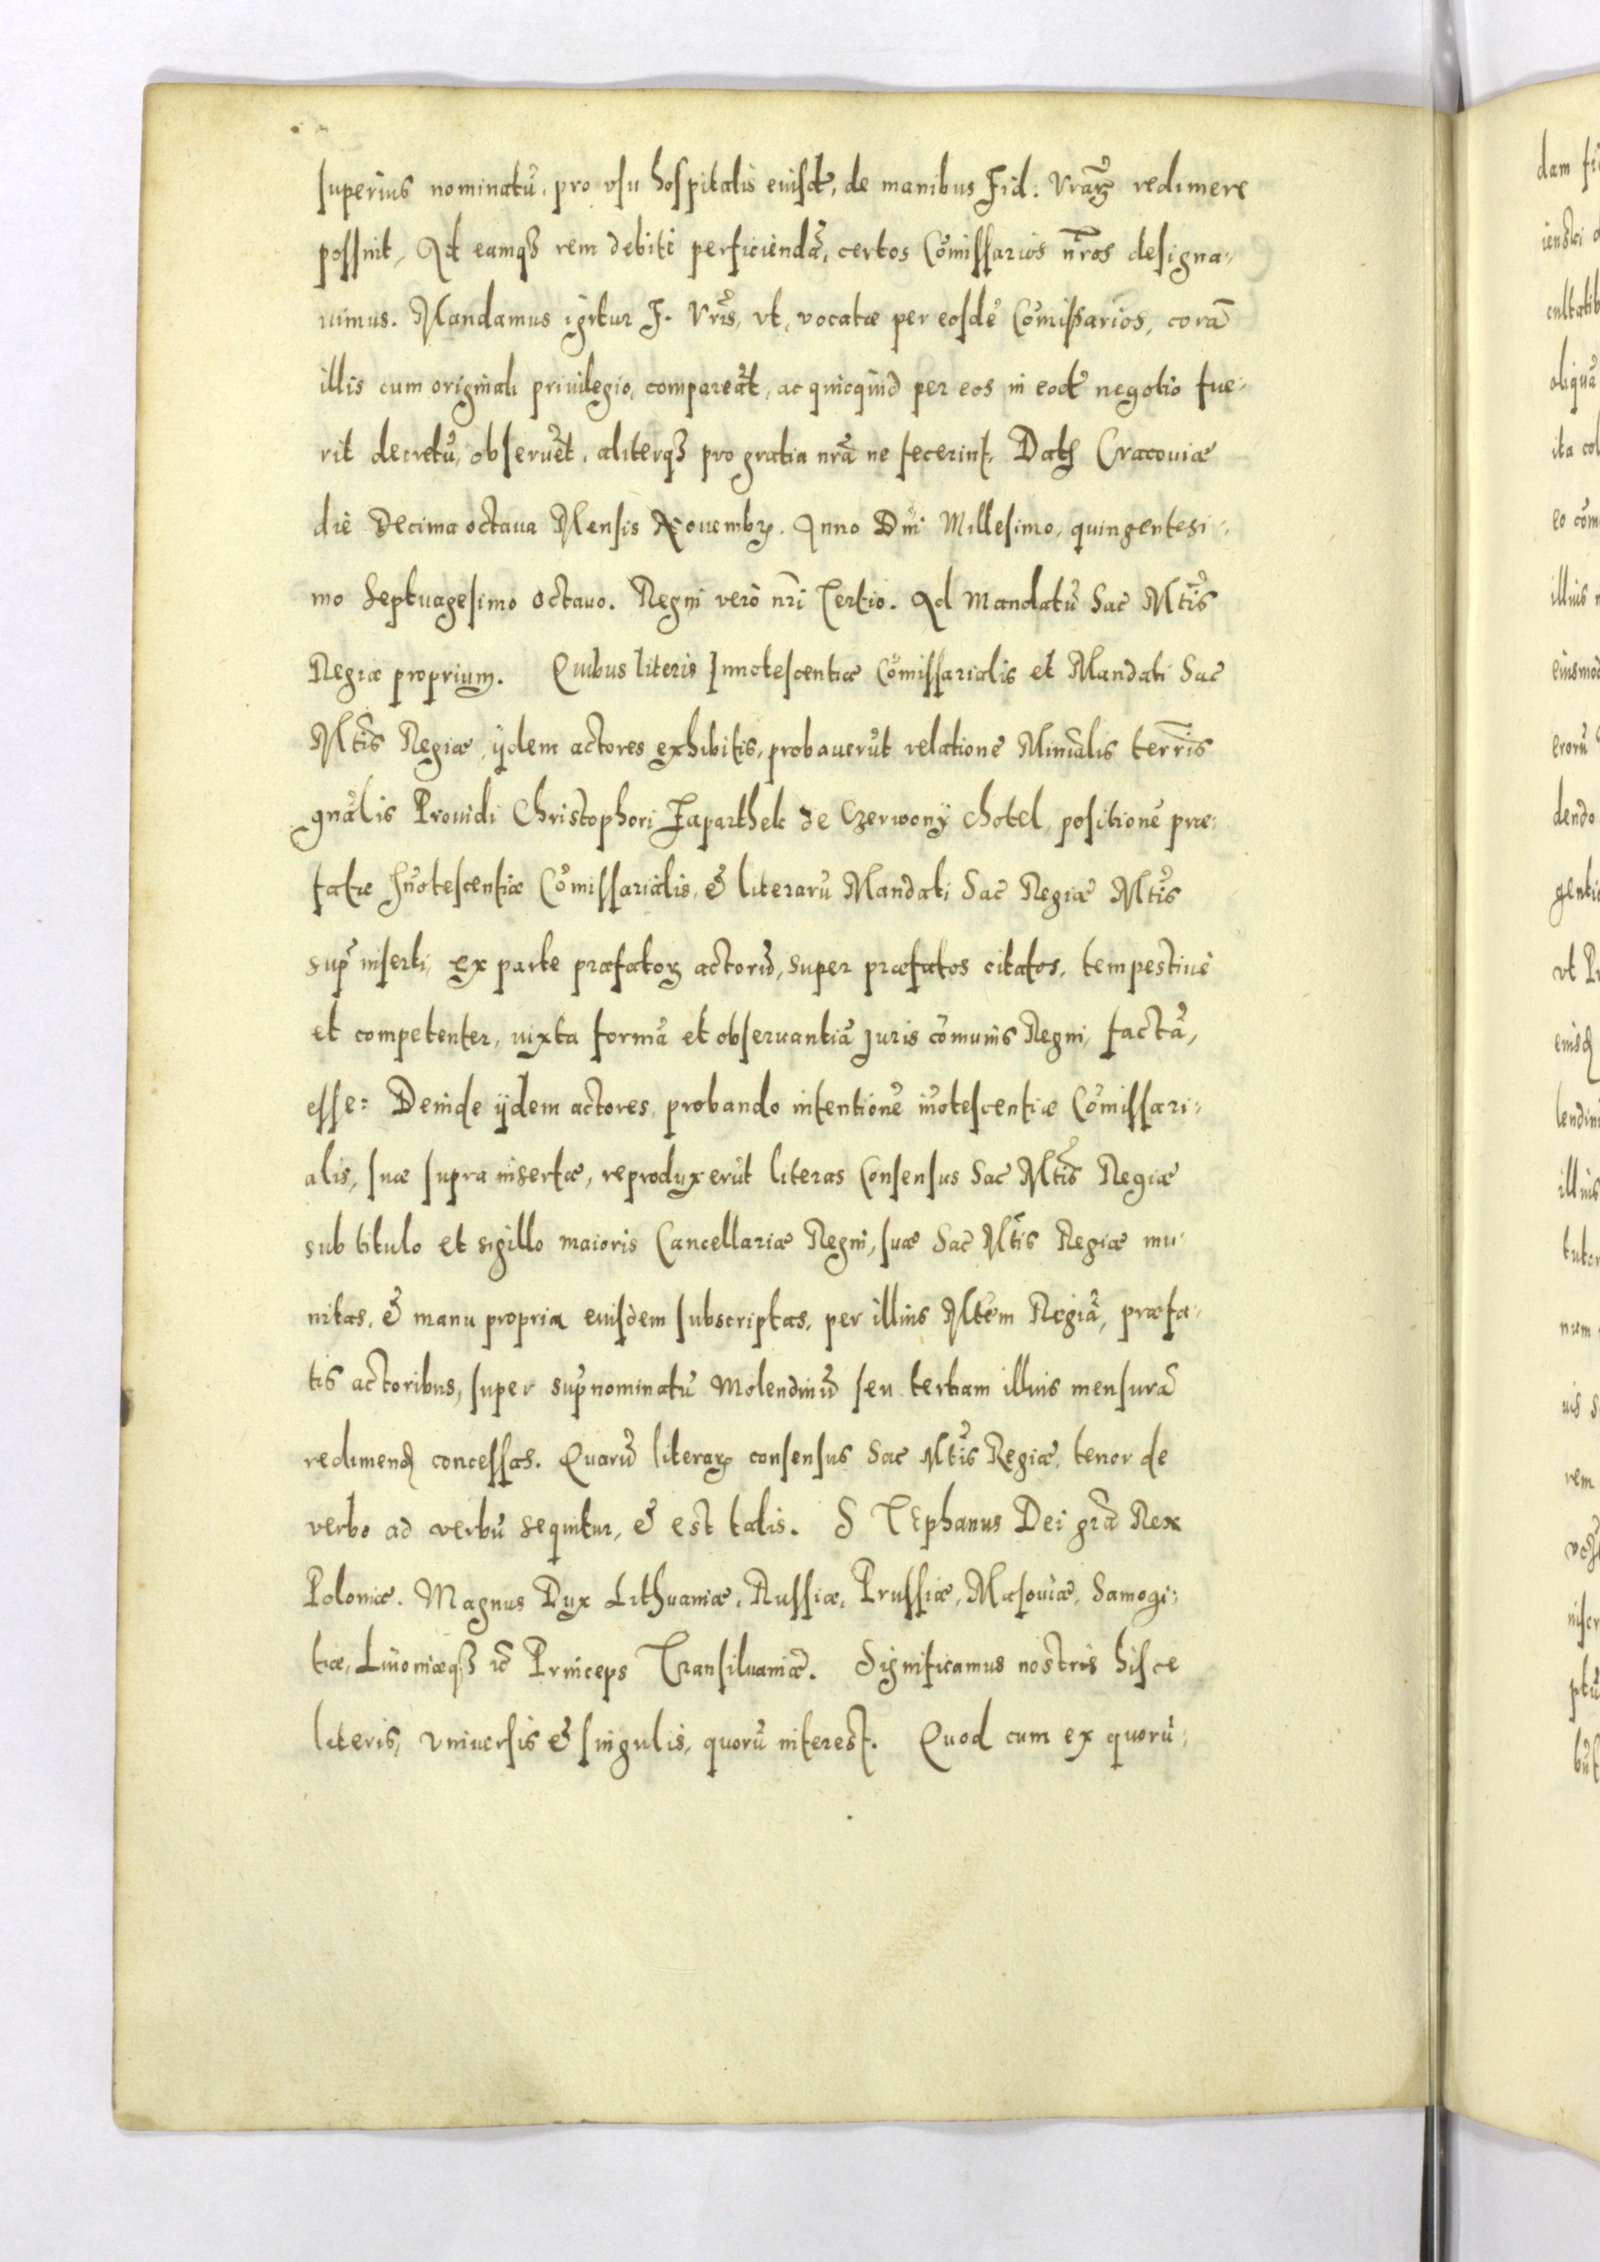 superius nominatū, pro vsu hospitalis eiusdē, de manibus Fid: Vrāꝝ redimere
possint, Ad eamqꝫ rem debitè perficiendā, certos Cōmissarios nr̄os designa-
uimus. Mandamus igitur F. Vrīs, vt, vocatæ per eosdē Cōmissarios, corā
illis cum originali priuilegio, compareāt, ac quicquid per eos in eodē negotio fue-
rit decretū, obseruēt, aliterqꝫ pro gratia nrā ne fecerint. Datꝭ Cracouiæ
die Decima octaua Mensis Nouembrꝭ. Anno Dn̄i Millesimo, quingentesi-
mo Septuagesimo octauo. Regni verò nr̄i Tertio. Ad Mandatū Sac̄ Mtīs
Regiæ proprium. Quibus literis Innotescentiæ Cōmissarialis et Mandati Sac̄
Mtīs Regiæ, ijdem actores exhibitis, probauerūt relationē Miniālis terrīs
gnālis Prouidi Christophori Faparthek de Czerwony Chotel, positionē præ-
fatæ Iñotescentiæ Cōmissarialis, & literarū Mandati Sac̄ Regiæ Mtīs
sup̄ inserti, ex parte præfatoꝝ actorū, super præfatos citatos, tempestiuè
et competenter, iuxta formā et obseruantiā Iuris cōmunis Regni, factā,
esse: Deinde ijdem actores, probando intentionē iñotescentiæ Cōmissari-
alis, suæ supra insertæ, reproduxerūt literas Consensus Sac̄ Mtīs Regiæ
sub titulo et sigillo maioris Cancellariæ Regni, suæ Sac̄ Mtīs Regiæ mu-
nitas, & manu propria eiusdem subscriptas, per illius Mtēm Regiā, præfa-
tis actoribus, super sup̄nominatū Molendinū seu tertiam illius mensurā
redimendꝭ concessas. Quarū literaꝝ consensus Sac̄ Mtīs Regiæ, tenor de
verbo ad verbū sequitur, & est talis. STEphanus Dei grā Rex
Poloniæ. Magnus Dux Lithuaniæ, Russiæ, Prussiæ, Masouiæ, Samogi-
tiæ, Liuoniæqꝫ ac̄ Princeps Transiluaniæ. Significamus nostris hisce
literis, vniuersis & singulis, quorū interest. Quod cum ex quorū-